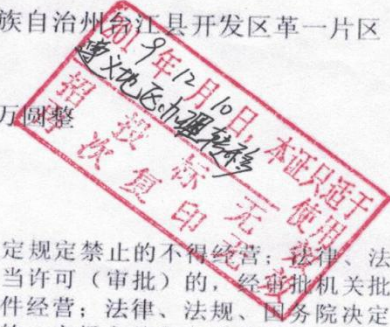 族自治州台江县开发区革一片区
万圆整
201 9年12月10日,本证只适于
遵义地区办理转移 使用
招投标无效
再次复印无效
定规定禁止的不得经营;法律、法
当许可(审批)的,经审批机关批
件经营;法律、法规、国务院决定